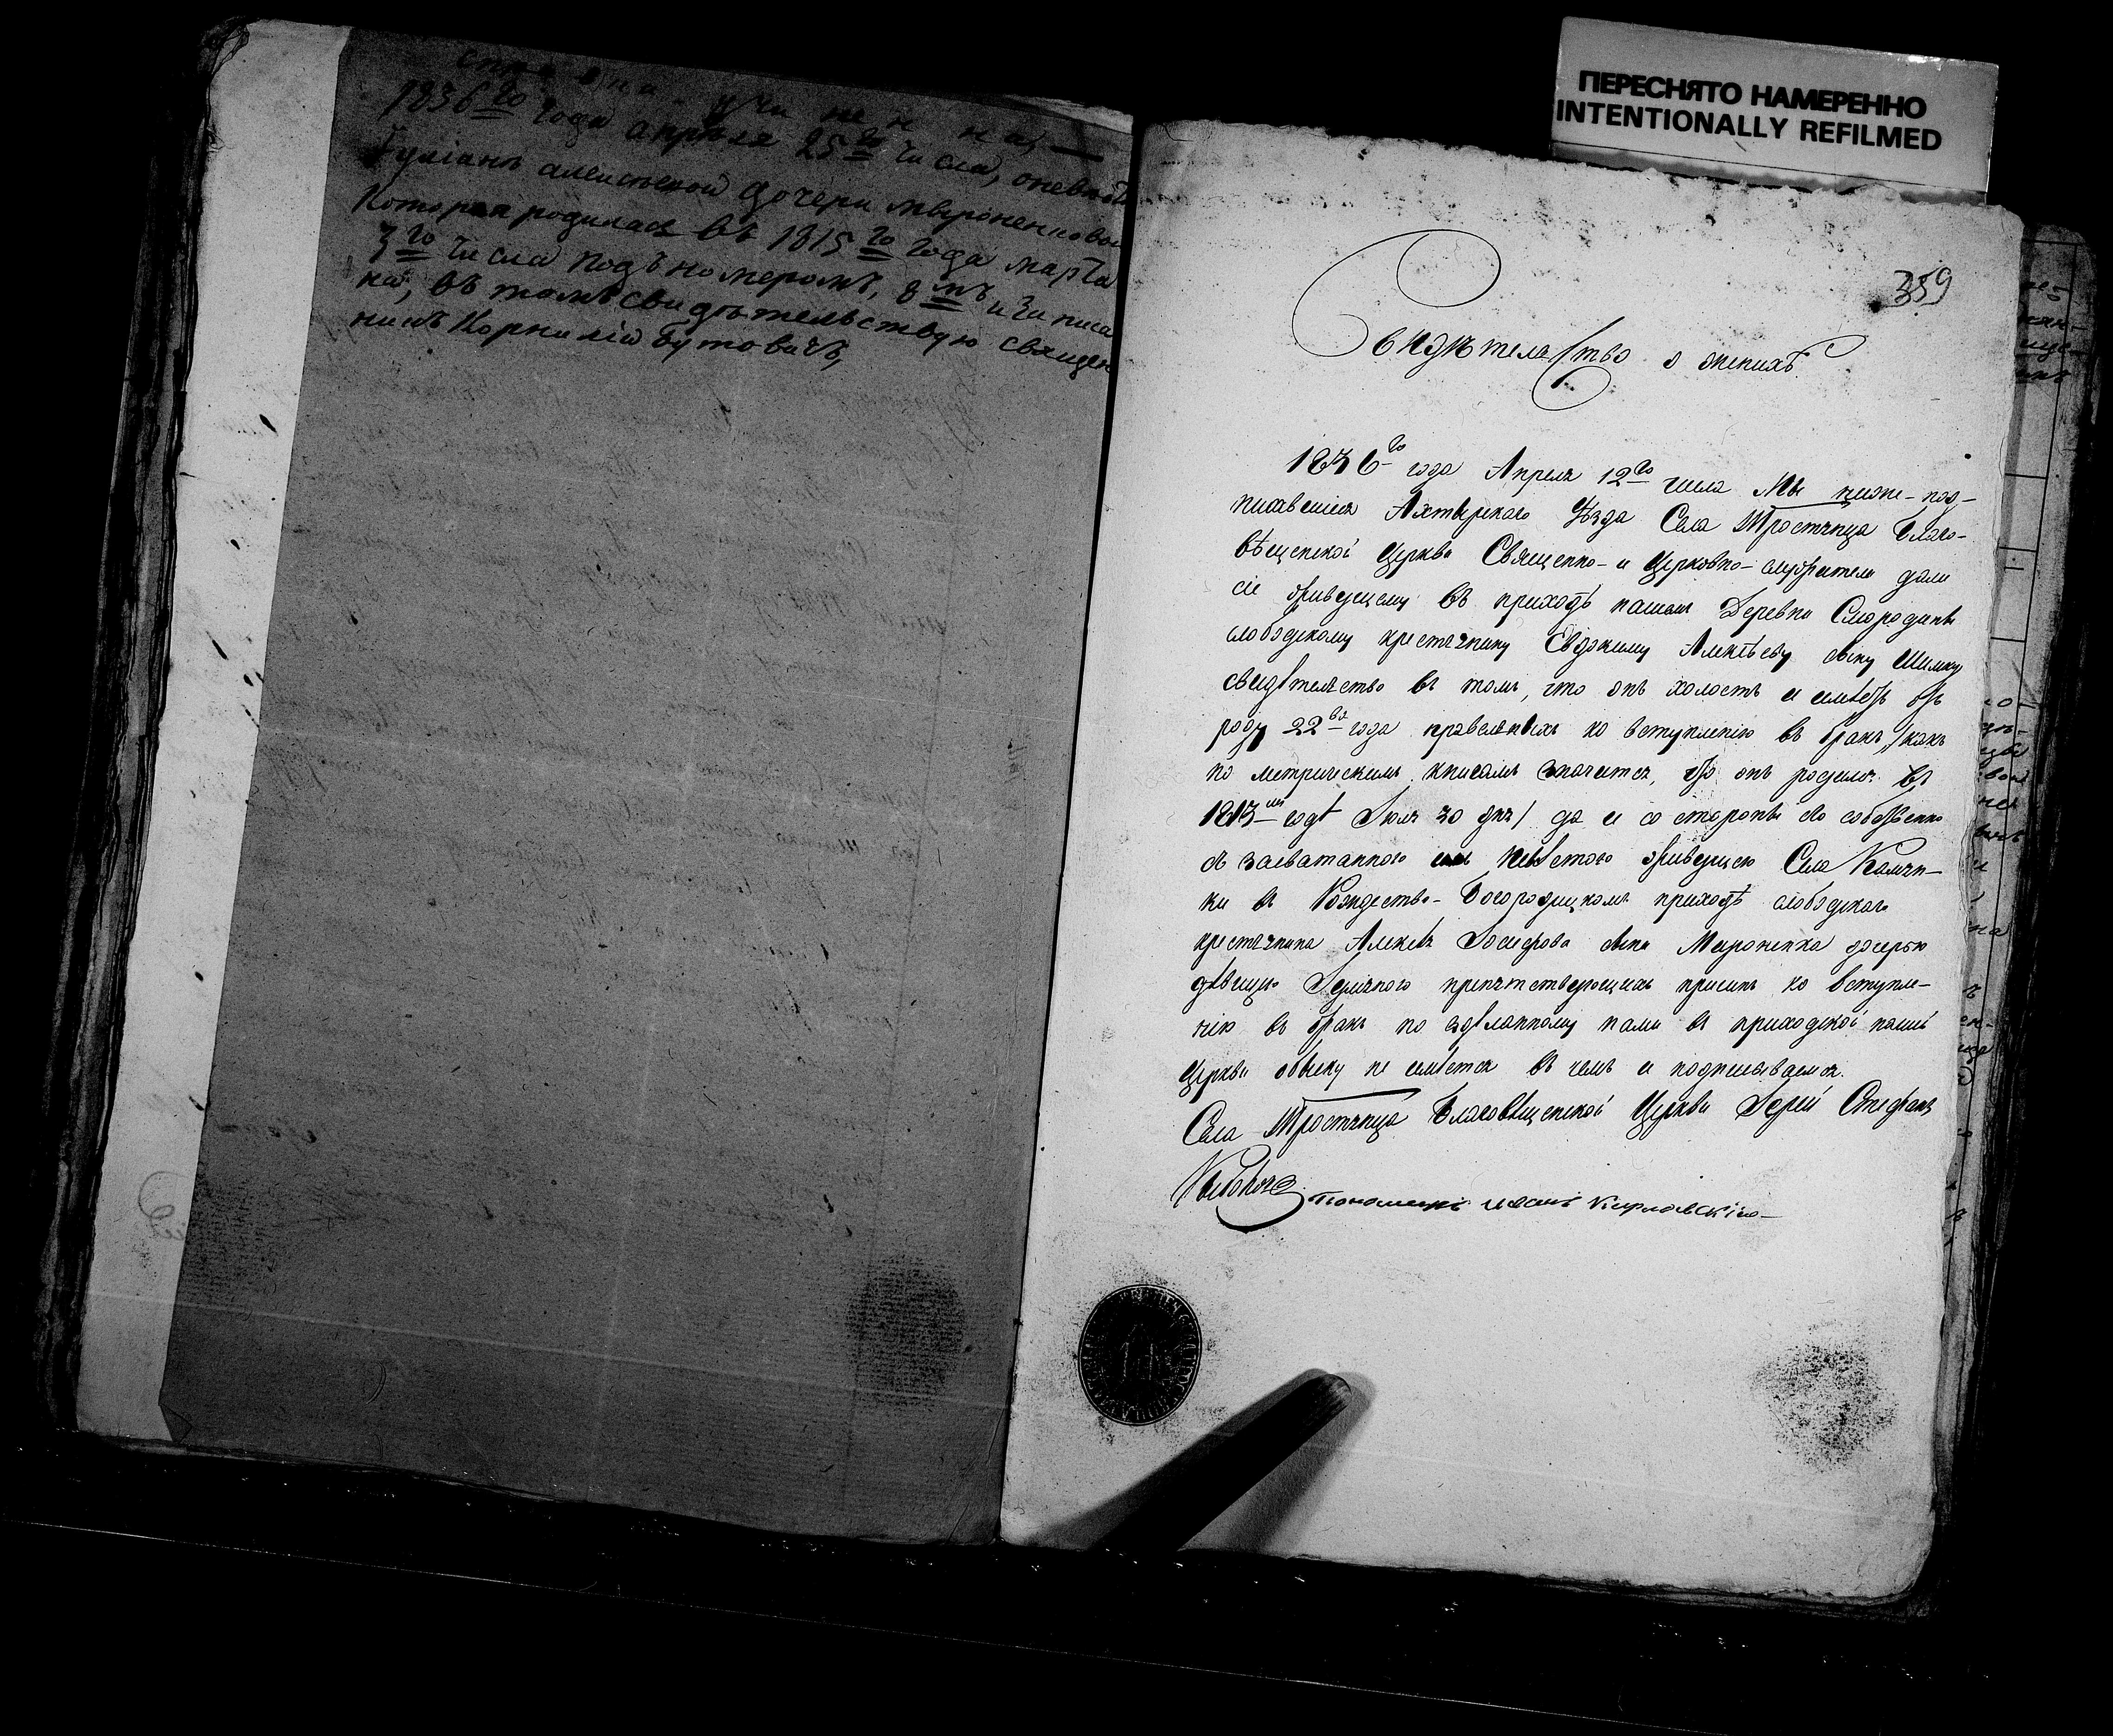 справка учинена,
1836го года апреля 25го числа, о невестѣ
Гуліанѣ алексѣевой дочери мыроненковой
Которая родилась въ 1815го года марта
3го числа подъ номеромъ, 8мъ и записа
на, въ томъ свидѣтельствую священ
никъ Корнилій Бутовичъ,
ПЕРЕСНЯТО НАМЕРЕННО
INTENTIONALLY REFILMED
359
Свидѣтельство о женихѣ
1836го года Апреля 12го числа Мы ниже-под-
писавшіеся Ахтырского Уѣзда Села Тростянца Благо-
вѣщенской Церкви Священно- и Церковно-служители дали
сіе живущему въ приходѣ нашемъ Деревни Смородины
слободскому крестьянину Евдокиму Алексѣеву сыну Шимку
свидѣтельство въ томъ, что онъ холостъ и имѣетъ отъ
роду 22ва года правильныхъ ко вступленію въ бракъ, /какъ
по метрическимъ книгамъ значится, что онъ родился въ
1813мъ годѣ Іюля 30 дня/ да и со стороны его собственно
съ засватанною имъ невѣстою живущею Села Камян-
ки въ Рождество-Богородицкомъ приходѣ слободскаго
крестьянина Алексѣя Іосифова сына Мироненка дочерью
дѣвицею препятствующихъ причинъ ко вступле-
нію въ бракъ по здѣланному нами въ приходской нашей
Церкви обыску не имѣется въ чемъ и подписываемся.
Села Тростянца Благовѣщенской Церкви Іерей Стефанъ
Пономарь Иванъ